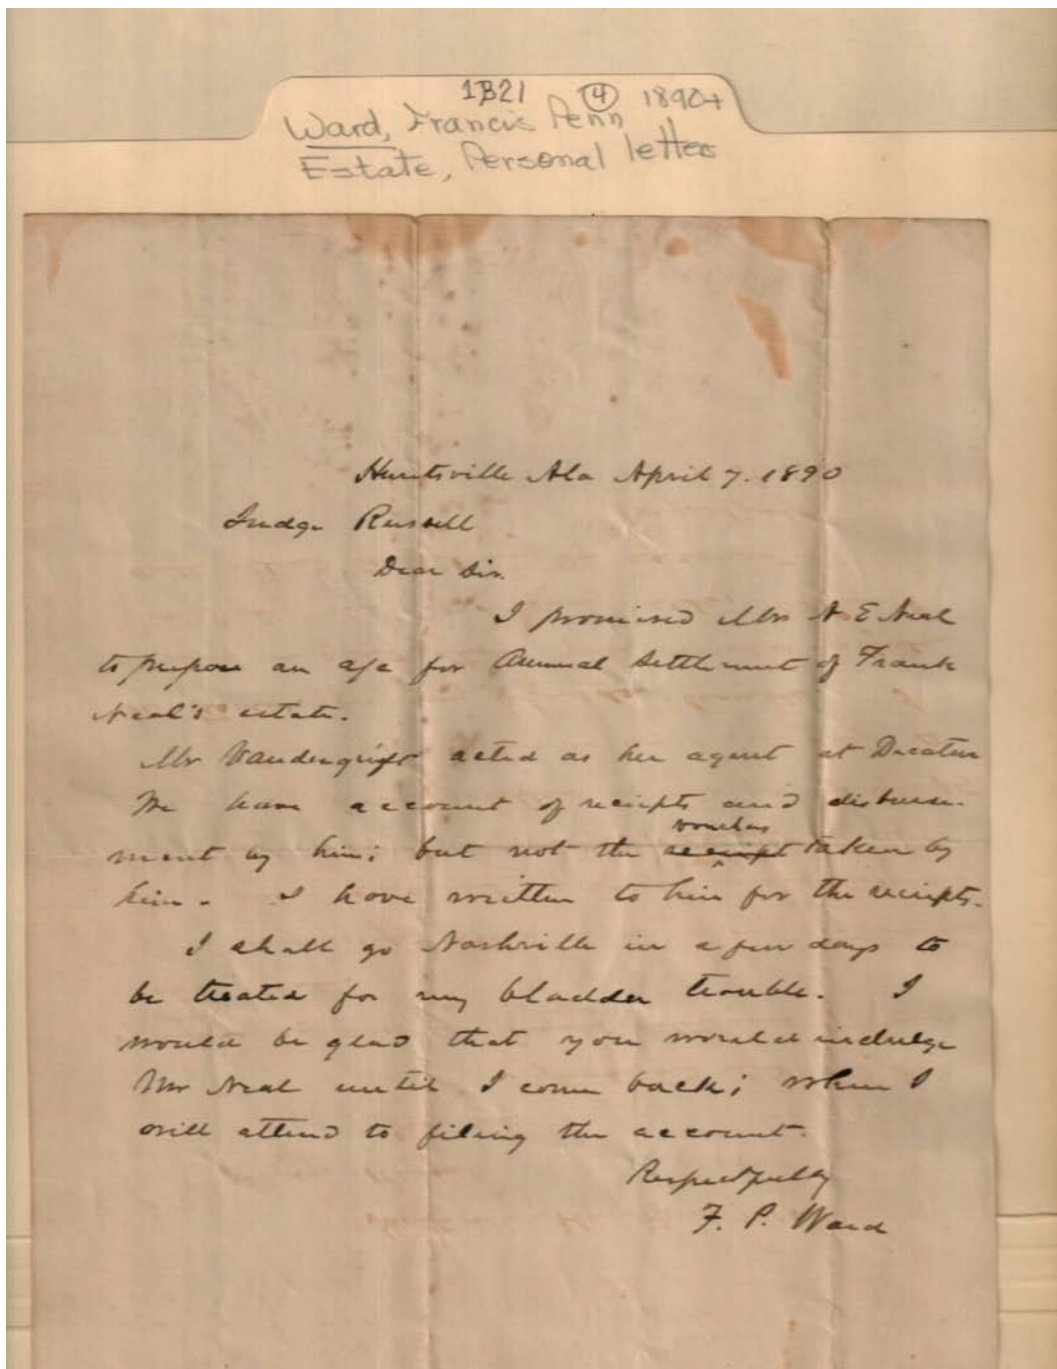 1B21 4 1890+
Ward, Francis Penn
Estate, Personal letter
Huntsville Ala April 7. 1890
Judge Russell
Dear Sir.
I promised Mrs N E Neal
to prepare an a/c for Annual Settlement of Frank
Neal's estate.
Mr Vandergrift acted as her agent at Decatur
We have account of receipts and disburse-
vouchers
ment by him; but not the receipt taken by
him. I have written to him for the receipts.
I shall go Nashville in a few days to
be treated for my bladder trouble. I
would be glad that you would indulge
Mrs Neal until I come back; when I
will attend to filing the account.
Respectfully
F. P. Ward